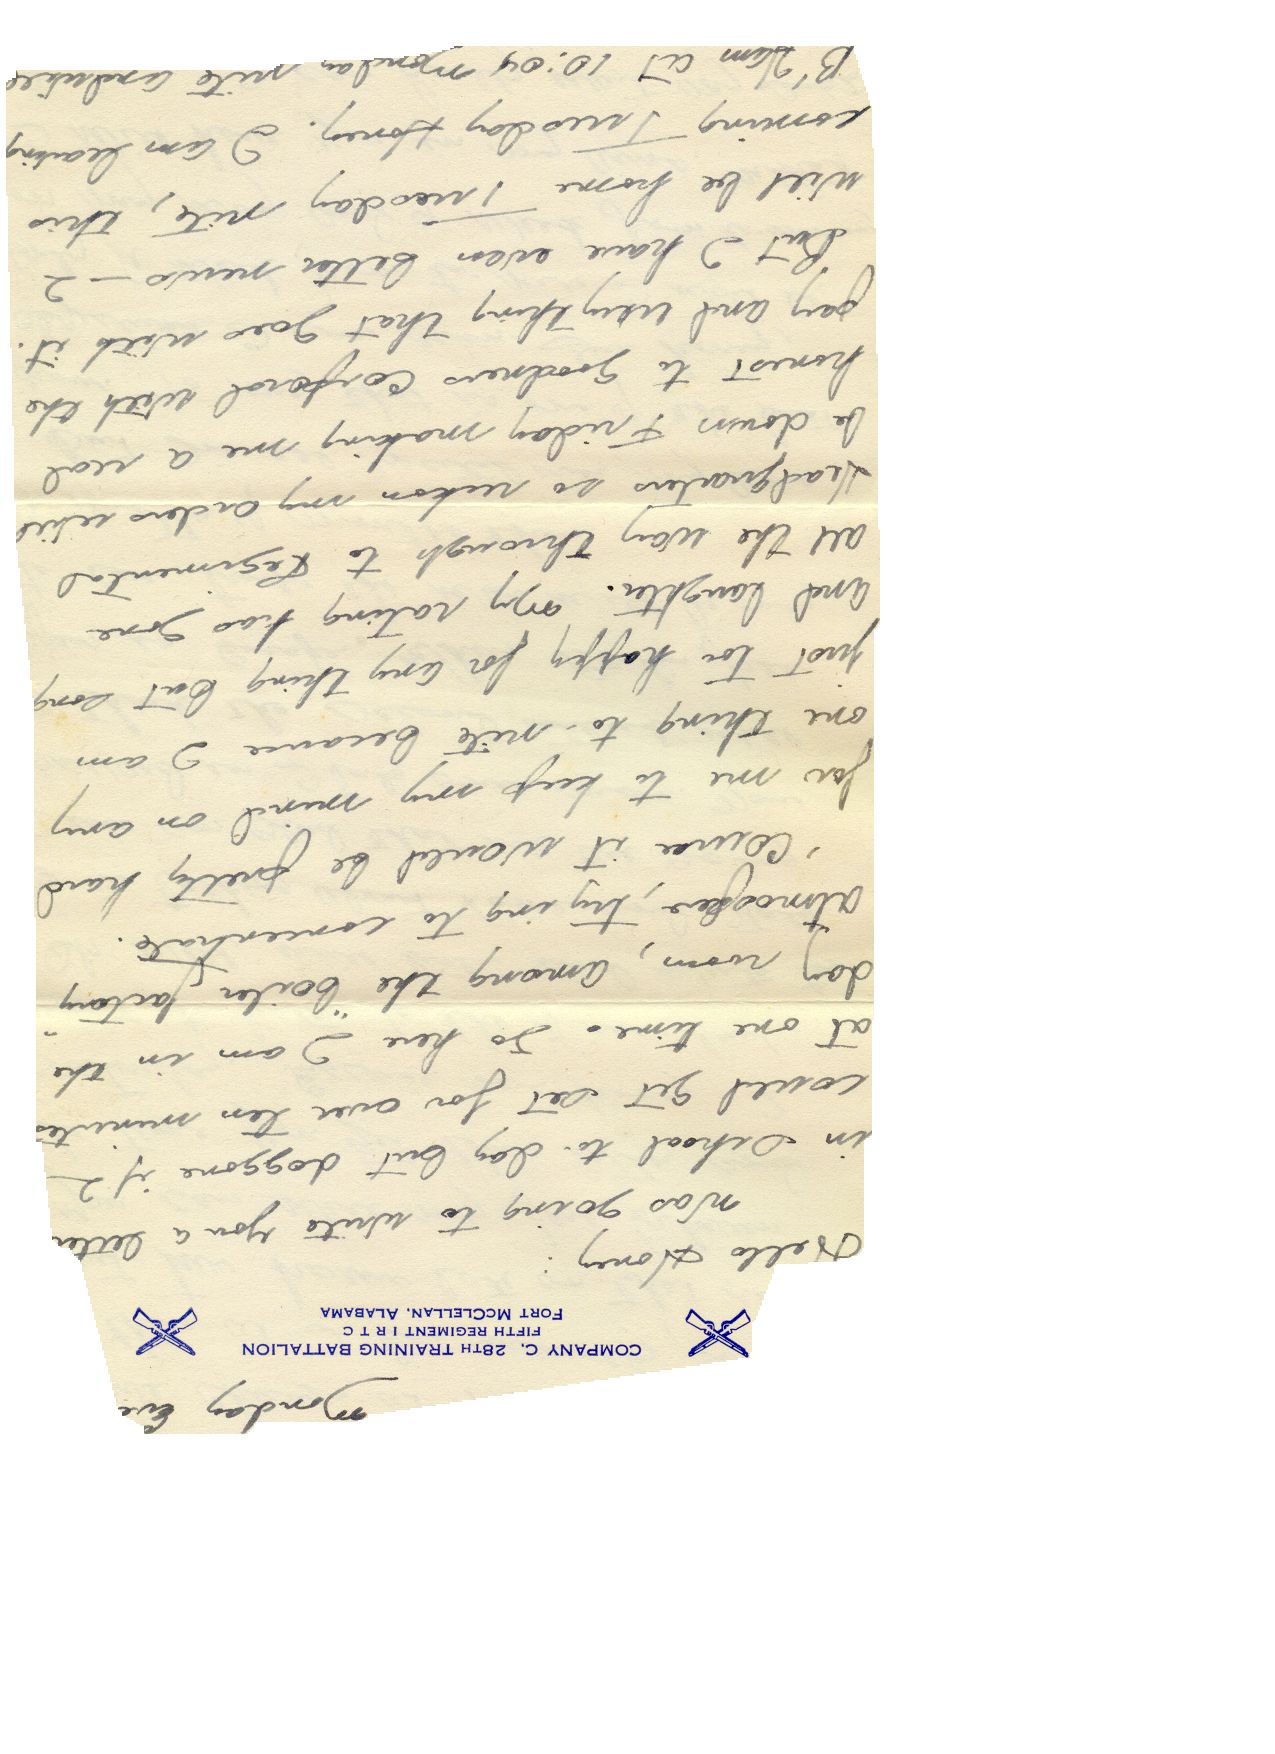 Monday Eve
COMPANY C, 28TH TRAINING BATTALION
FIFTH REGIMENT I R T C
FORT MCCLELLAN, ALABAMA
Hello Honey:
Was going to write you a letter
in School to-day but doggone if I
could get set for over ten minutes
at one time. So here I am in the
day room, among the "boiler factory"
atmosfere, trying to concentrate.
Course it would be pretty hard
for me to keep my mind on any
one thing to-nite because I am
just too happy for any thing but song
and laughter. My rating has gone
all the way through to Regimental
Headquarters so reckon my orders will
be down Friday making me a real
honest to goodness Corporal with the
pay and everything that goes with it.
But I have even better news — I
will be home Tuesday nite, this
coming Tuesday Honey. I am leaving
B'Ham at 10:04 Monday nite